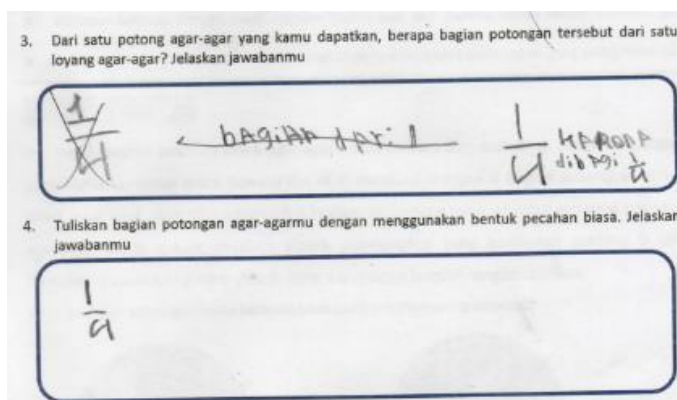 3. Dari satu potong agar-agar yang kamu dapatkan, berapa bagian potongan tersebut dari satu
loyang agar-agar? Jelaskan jawabanmu
1/4 bAgiAn dAri 1 1/4 KARANA
dibAgi 1/4
4. Tuliskan bagian potongan agar-agarmu dengan menggunakan bentuk pecahan biasa. Jelaskan
jawabanmu
1/4